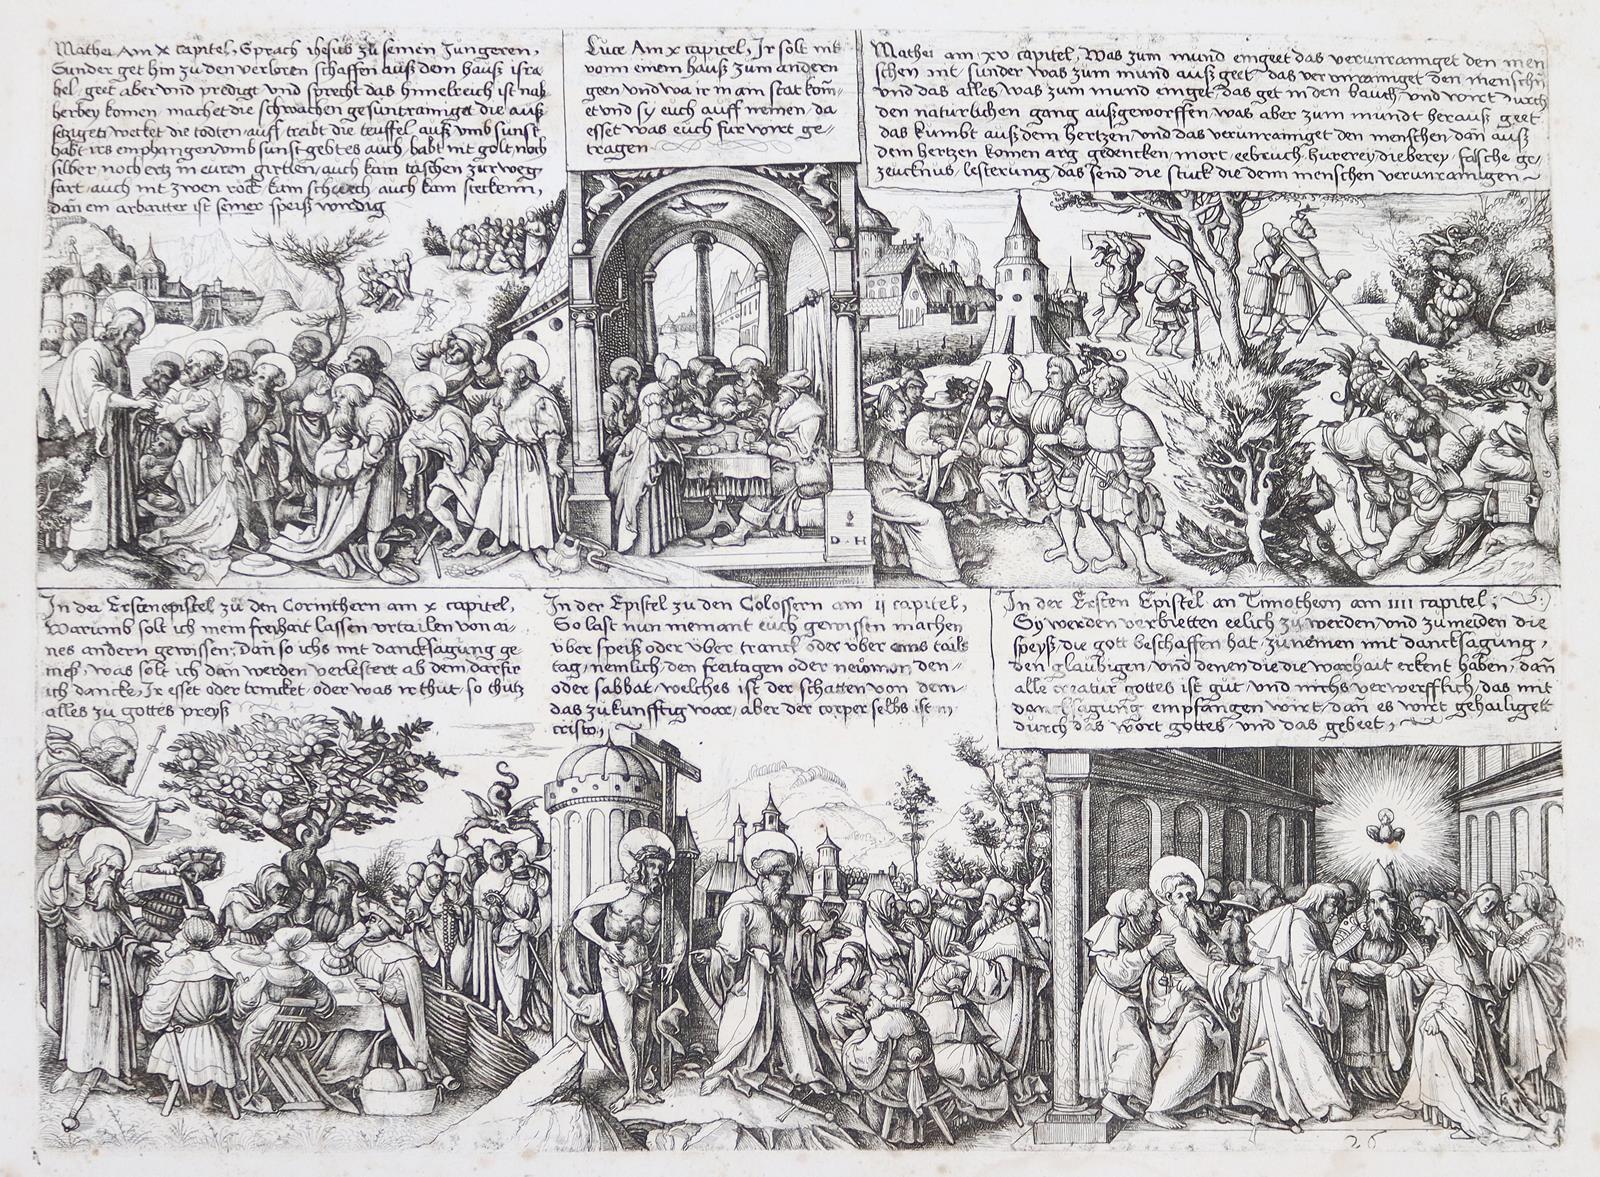 Mathei Am x capitel, Sprach ihesus zu seinen Jungeren,
Sunder get hin zu den verloren schaffen auß dem hauß isra
hel, geet aber vnd predigt vnd sprecht das himelreich ist nah
herbey komen, machet die schwachen gesunt rainiget die auß
setzigen wecket die todten auf, treibt die teuffel auß vmb sunst
habt irs emphangen vmb sunst gebt es auch, habt nit golt noch
silber noch ertz in euren girtlen, auch kain taschen zur weg
fart, auch nit zwen röck kain schuech, auch kain steckenn,
dan ein arbaitter ist seiner speiß wirdig
Luce Am x capitel, Ir solt nit
vonn einem hauß zum andern
geen vnd wa ir in ain stat kom̄-
et vnd sy euch auff nemen, da
esset was euch fur wirt ge-
tragen
Mathei am xv capitel, Was zum mund eingeet das verunrainiget den men
schen nit, sunder was zum mund auß geet das verunrainiget den menschn
vnd das alles was zum mund einget, das get in den bauch vnd wirt durch
den naturlichen gang außgeworffen, was aber zum mundt herauß geet
das kumbt auß dem hertzen, vnd das verunrainiget den menschen, dan auß
dem hertzen komen arg gedencken, mort, eebruch, hurerey, dieberey, falsche ge-
zeucknus, lesterung, das send die stuck die denn menschen verunrainigen
D H
In der Ersten epistel zu den Corinthern am x capitel,
Warumb solt ich mein freyhait lassen vrtailen von ai-
nes andern gewissen: Dan so ichs mit dancksagung ge-
nieß, was solt ich dan werden verlestert ab dem darfir
ich dancke, Ir esset oder trincket, oder was ir thut, so thutz
alles zu gottes preyß
In der Epistel zu den Colossern am ii capitel,
So last nun niemant euch gewissen machen
über speiß oder über tranck oder über eins tails
tag, nemlich, den freitagen oder newmon den-
oder sabbat, welches ist der schatten von dem-
das zukunfftig war, aber der corper selbs ist in
cristo,
In der Ersten Epistel an Timotheon am iiii capitel;
Sy werden verbietten eelich zu werden, vnd zu meiden die
speyß, die gott beschaffen hat, zu nemen mit dancksagung,
den glaubigen, vnd denen die die warhait erkent haben, dan̄
alle creatur gottes ist gut, vnd nichs verwerfflich, das mit
dancksagung empfangen wirt, dan es wirt gehailiget
durch das wort gottes, vnd das gebeet,
26